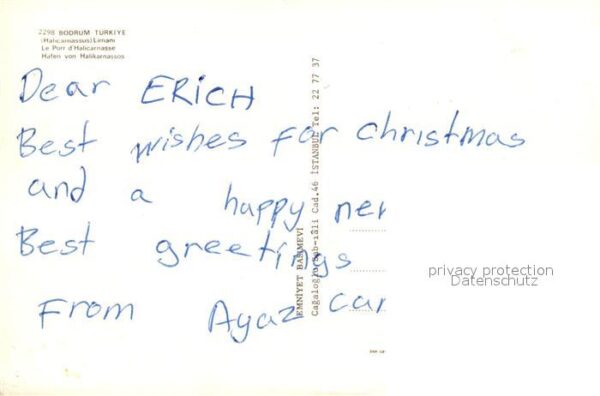 2298 BODRUM TÜRKİYE
(Halicarnassus) Limanı
Le Port d'Halicarnasse
Hafen von Halikarnassos
Dear ERICH
Best wishes for christmas
and a happy new
Best greetings
From Ayaz car
EMNİYET BASIMEVİ
Cağaloğlu Bab-ıâli Cad.46 İSTANBUL Tel: 22 77 37
privacy protection
Datenschutz